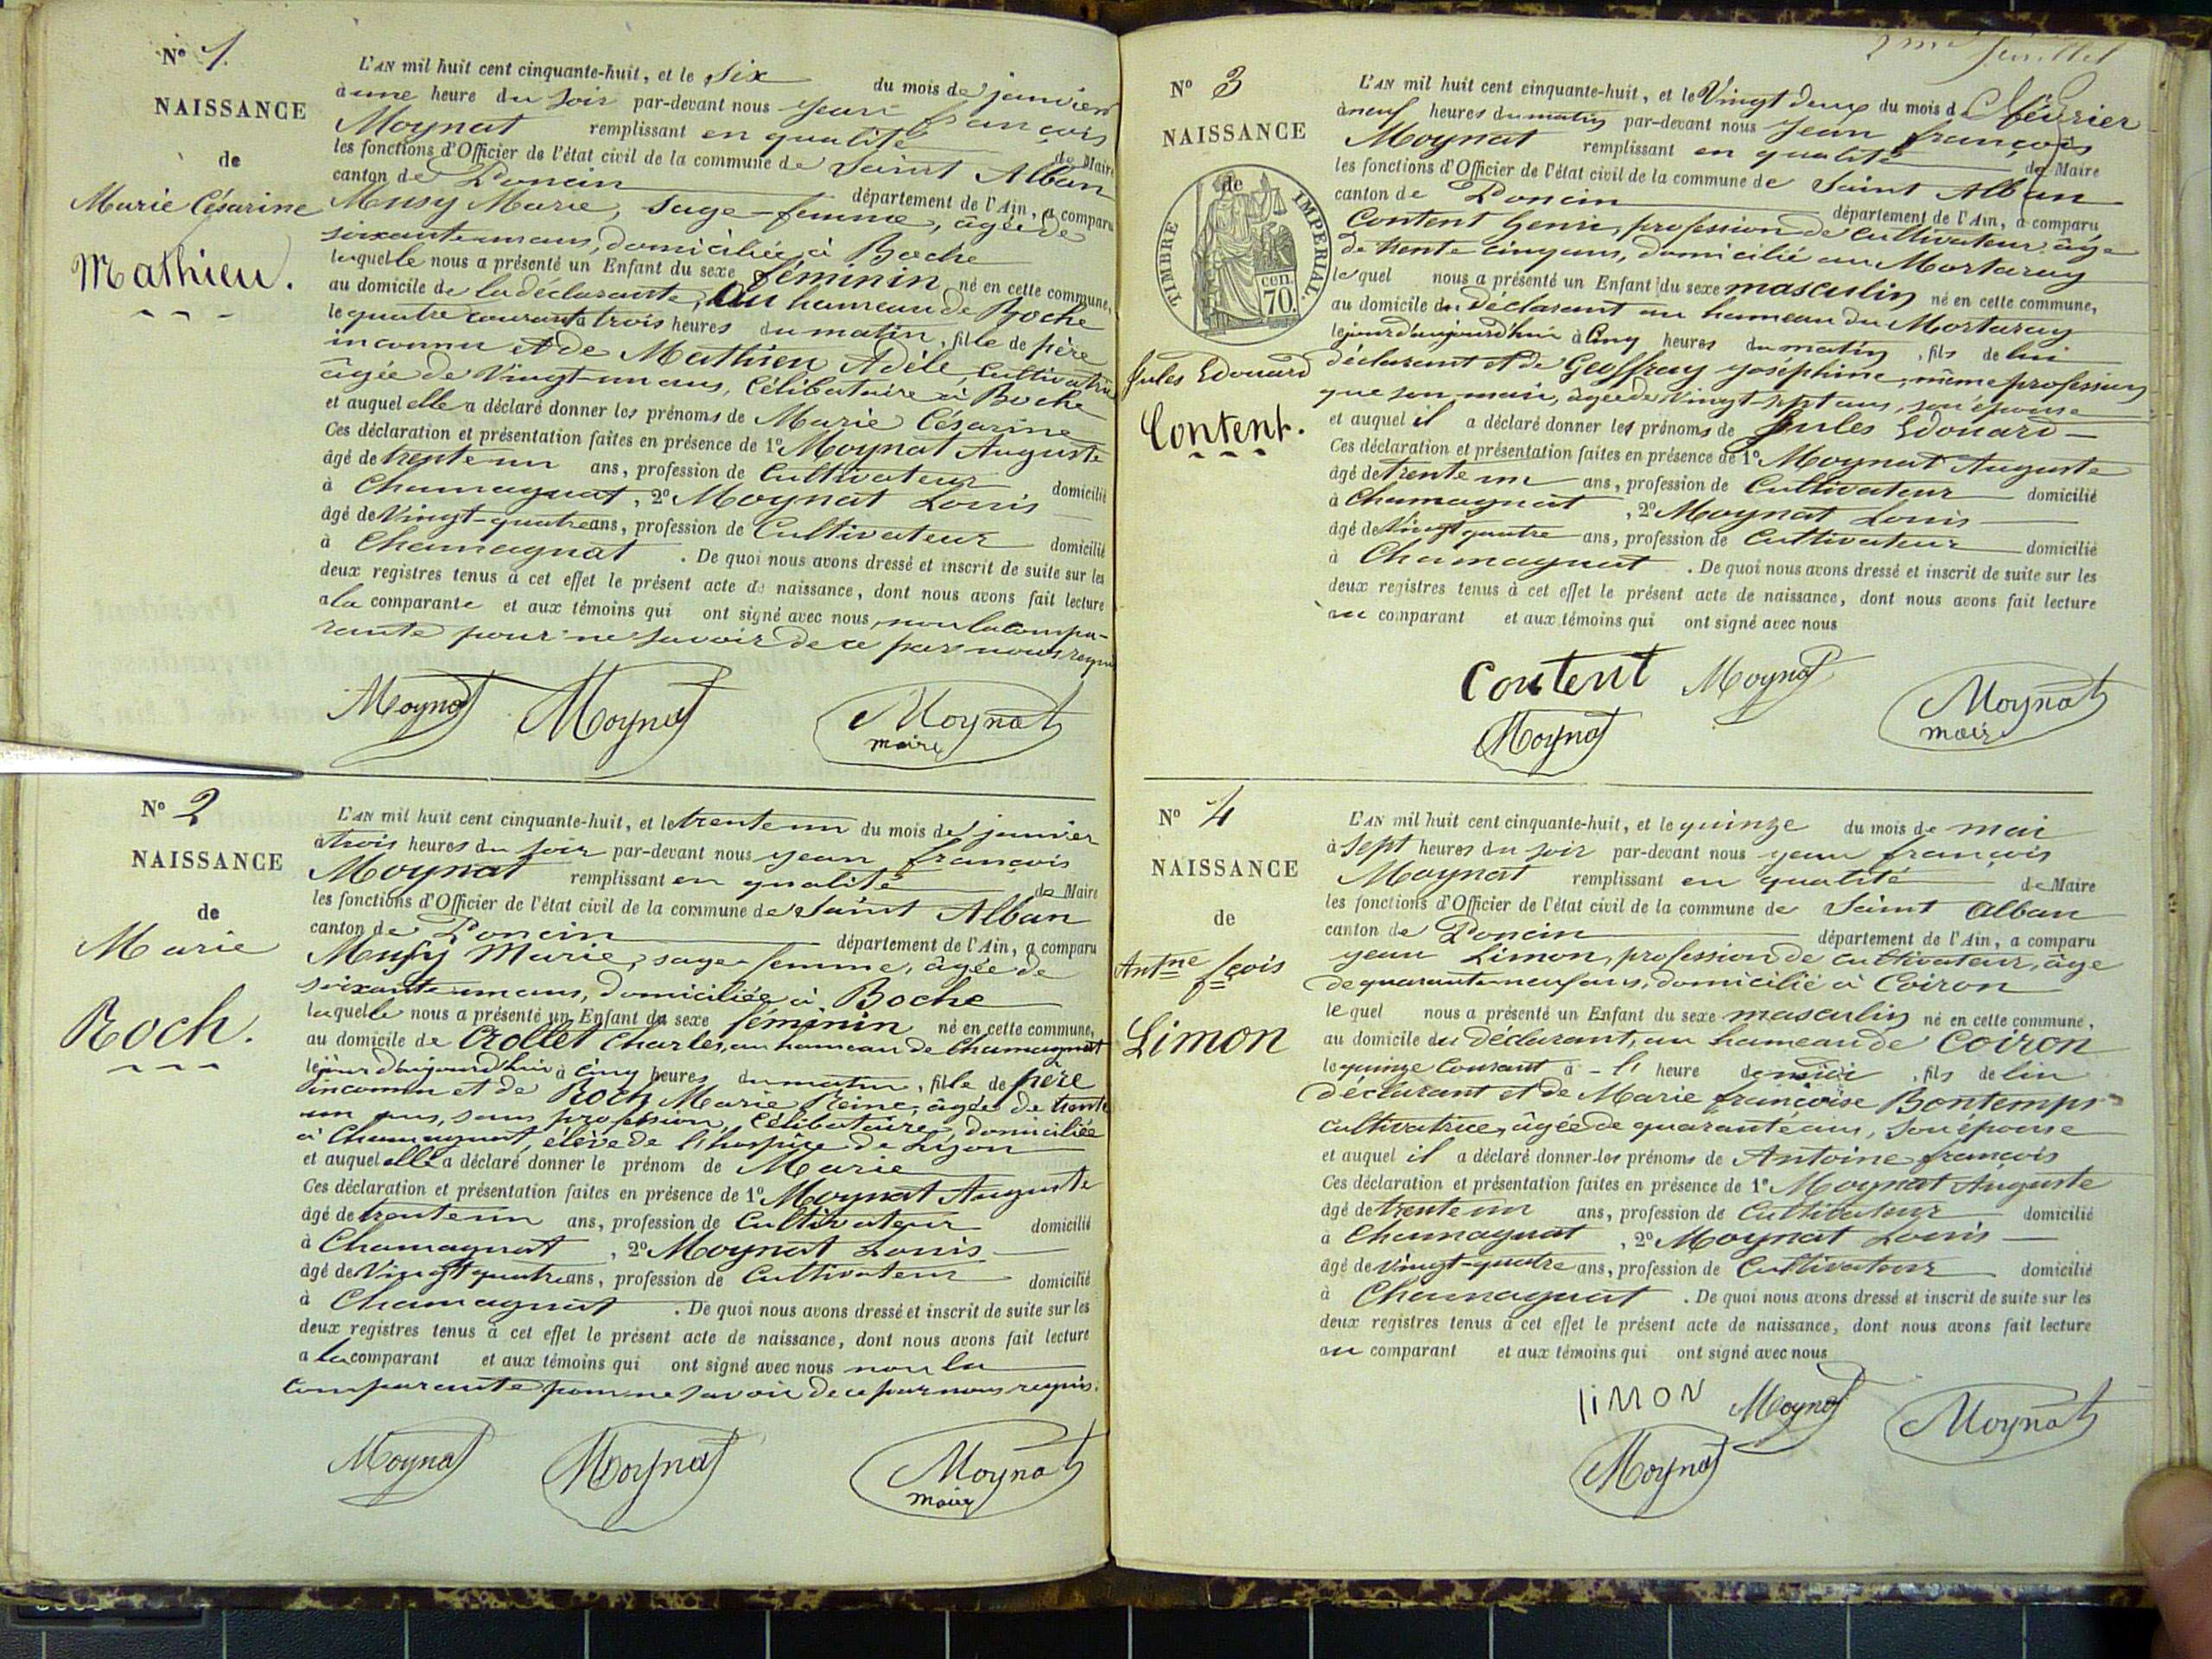 N° 1.
NAISSANCE
de
Marie Césarine
Mathieu.
L'AN mil huit cent cinquante-huit, et le six du mois de janvier
à une heure du soir par-devant nous Jean françois
Moynat remplissant en qualité de Maire
les fonctions d'Officier de l'état civil de la commune de Saint Alban
canton de Poncin département de l'Ain, a comparu
Musy Marie, sage-femme, âgée de
soixante un ans, domiciliée à Boche
laquelle nous a présenté un Enfant du sexe féminin né en cette commune,
au domicile de la déclarante, au hameau de Boche
le quatre courant à trois heures du matin, fille de père
inconnu et de Mathieu Adèle, Cultivatrice
âgée de Vingt-un ans, Célibataire à Boche
et auquel elle a déclaré donner les prénoms de Marie Césarine
Ces déclaration et présentation faites en présence de 1° Moynat Auguste
âgé de trente un ans, profession de Cultivateur domicilié
à Chamagnat, 2° Moynat Louis
âgé de Vingt-quatre ans, profession de Cultivateur domicilié
à Chamagnat. De quoi nous avons dressé et inscrit de suite sur les
deux registres tenus à cet effet le présent acte de naissance, dont nous avons fait lecture
a la comparante et aux témoins qui ont signé avec nous, non la compa-
rante pour ne savoir de ce par nous requis
Moynat Moynat Moynat
maire
N° 2
NAISSANCE
de
Marie
Roch.
L'AN mil huit cent cinquante-huit, et le trente un du mois de janvier
à trois heures du soir par-devant nous Jean françois
Moynat remplissant en qualité de Maire
les fonctions d'Officier de l'état civil de la commune de Saint Alban
canton de Poncin département de l'Ain, a comparu
Musy Marie, sage-femme, âgée de
soixante un ans, domiciliée à Boche
laquelle nous a présenté un Enfant du sexe féminin né en cette commune,
au domicile de Crollet Charles, au hameau de Chamagnat
le jour d'aujourd'hui à cinq heures du matin, fille de père
inconnu et de Roch Marie Reine, âgée de trente
un ans, sans profession, Célibataire, domiciliée
à Chamagnat, élève de l'hospice de Lyon
et auquel elle a déclaré donner le prénom de Marie
Ces déclaration et présentation faites en présence de 1° Moynat Auguste
âgé de trente un ans, profession de Cultivateur domicilié
à Chamagnat, 2° Moynat Louis
âgé de Vingt quatre ans, profession de Cultivateur domicilié
à Chamagnat. De quoi nous avons dressé et inscrit de suite sur les
deux registres tenus à cet effet le présent acte de naissance, dont nous avons fait lecture
a la comparant et aux témoins qui ont signé avec nous non la
comparante pour ne savoir de ce par nous requis.
Moynat Moynat Moynat
maire
2me feuillet
N° 3
NAISSANCE
de
TIMBRE IMPERIAL.
cen. 70.
Jules Edouard
Content.
L'AN mil huit cent cinquante-huit, et le Vingt deux du mois de février
à neuf heures du matin par-devant nous Jean françois
Moynat remplissant en qualité de Maire
les fonctions d'Officier de l'état civil de la commune de Saint Alban
canton de Poncin département de l'Ain, a comparu
Content Henri, profession de Cultivateur âgé
de trente cinq ans, domicilié au Mortaray
lequel nous a présenté un Enfant du sexe masculin né en cette commune,
au domicile du déclarant au hameau du Mortaray
le jour d'aujourd'hui à Cinq heures du matin, fils de lui
déclarant et de Geoffray Joséphine, même profession
que son mari, âgée de Vingt-sept ans, son épouse
et auquel il a déclaré donner les prénoms de Jules Edouard
Ces déclaration et présentation faites en présence de 1° Moynat Auguste
âgé de trente un ans, profession de Cultivateur domicilié
à Chamagnat, 2° Moynat Louis
âgé de Vingt quatre ans, profession de Cultivateur domicilié
à Chamagnat. De quoi nous avons dressé et inscrit de suite sur les
deux registres tenus à cet effet le présent acte de naissance, dont nous avons fait lecture
au comparant et aux témoins qui ont signé avec nous
Content Moynat
Moynat Moynat
maire
N° 4
NAISSANCE
de
Antne fçois
Limon
L'AN mil huit cent cinquante-huit, et le quinze du mois de mai
à sept heures du soir par-devant nous Jean françois
Moynat remplissant en qualité de Maire
les fonctions d'Officier de l'état civil de la commune de Saint Alban
canton de Poncin département de l'Ain, a comparu
Jean Limon, profession de cultivateur, âgé
de quarante neuf ans, domicilié à Coiron
lequel nous a présenté un Enfant du sexe masculin né en cette commune,
au domicile du déclarant, au hameau de Coiron
le quinze courant à - l' heure de midi, fils de lui
déclarant et de Marie françoise Bontemps
cultivatrice, âgée de quarante ans, son épouse
et auquel il a déclaré donner les prénoms de Antoine françois
Ces déclaration et présentation faites en présence de 1° Moynat Auguste
âgé de trente un ans, profession de Cultivateur domicilié
à Chamagnat, 2° Moynat Louis
âgé de vingt-quatre ans, profession de Cultivateur domicilié
à Chamagnat. De quoi nous avons dressé et inscrit de suite sur les
deux registres tenus à cet effet le présent acte de naissance, dont nous avons fait lecture
au comparant et aux témoins qui ont signé avec nous
liMON Moynat Moynat
Moynat